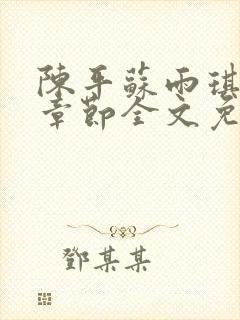 陳平蘇雨琪
章節全文免
鄧某某